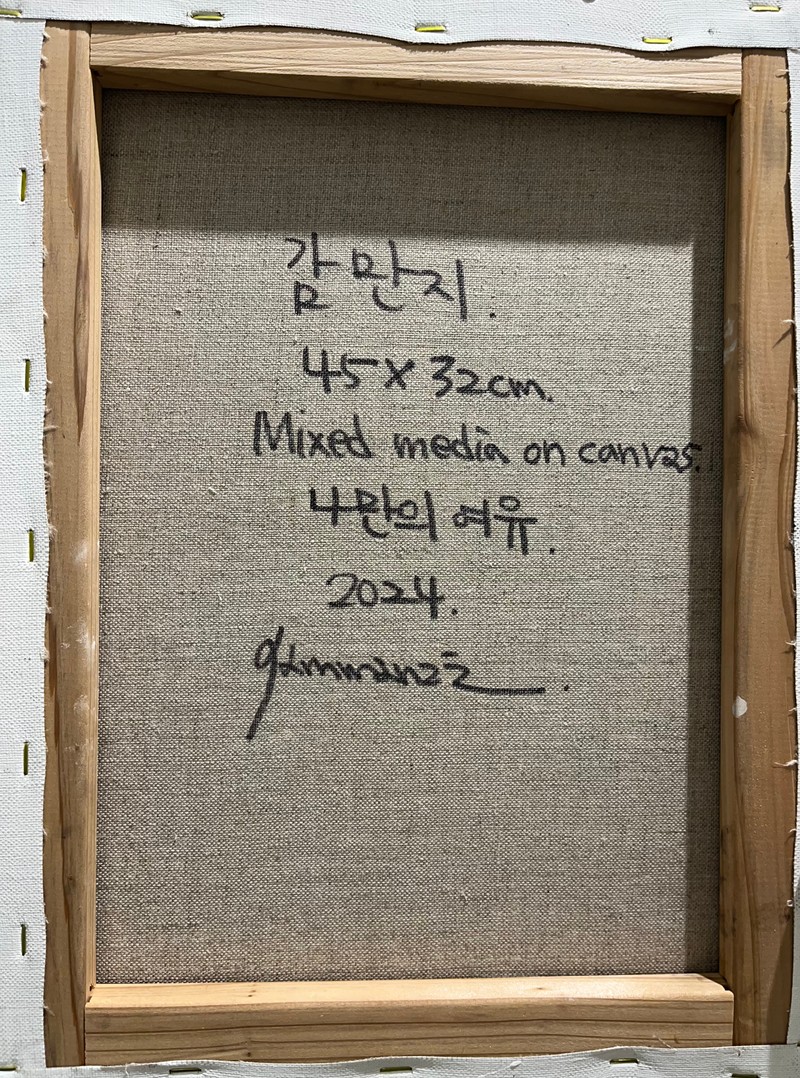 감만지.
45 x 32cm.
Mixed media on canvas.
나만의 여유.
2024.
gammanzi.